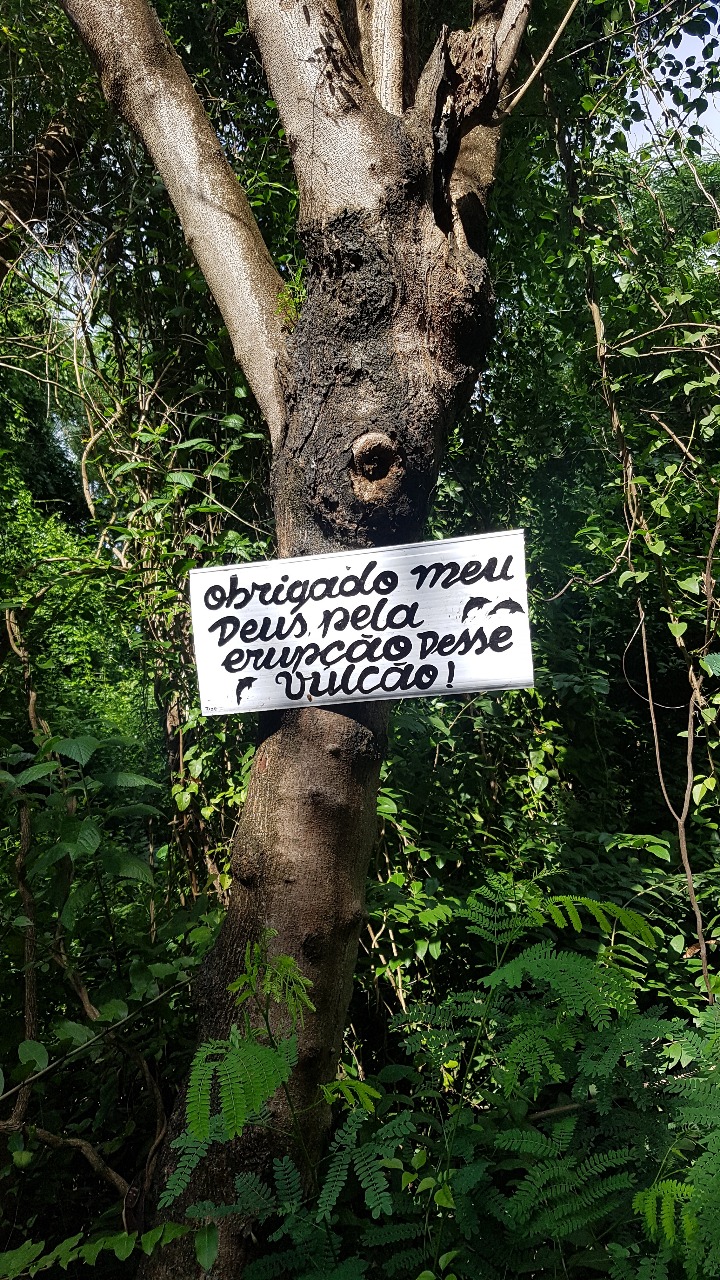 obrigado meu
Deus, pela
erupção Desse
vulcão!